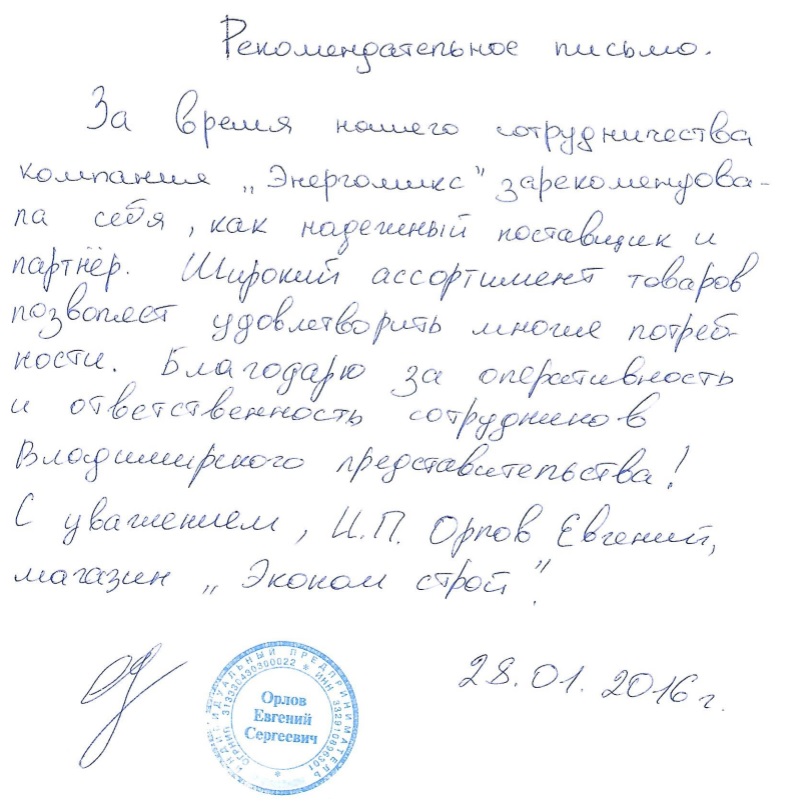 Рекомендательное письмо.
За время нашего сотрудничества
компания „Энергомикс" зарекомендова-
ла себя, как надежный поставщик и
партнёр. Широкий ассортимент товаров
позволяет удовлетворить многие потреб-
ности. Благодарю за оперативность
и ответственность сотрудников
Владимирского представительства!
С уважением, И.П. Орлов Евгений,
магазин „Эконом строй".
28.01.2016 г.
ИНДИВИДУАЛЬНЫЙ ПРЕДПРИНИМАТЕЛЬ
ОГРНИП ИНН
Орлов
Евгений
Сергеевич